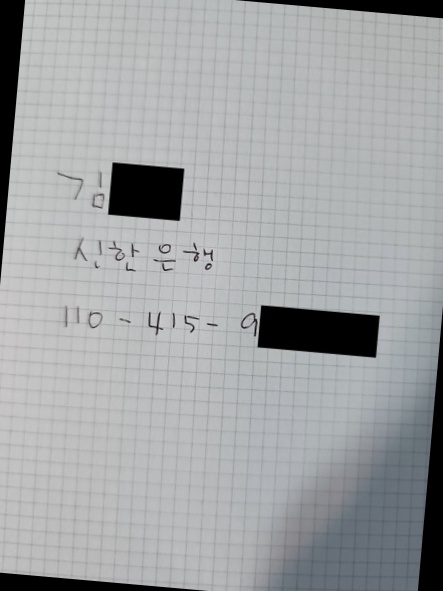 김
신한 은행
110 - 415 - 9